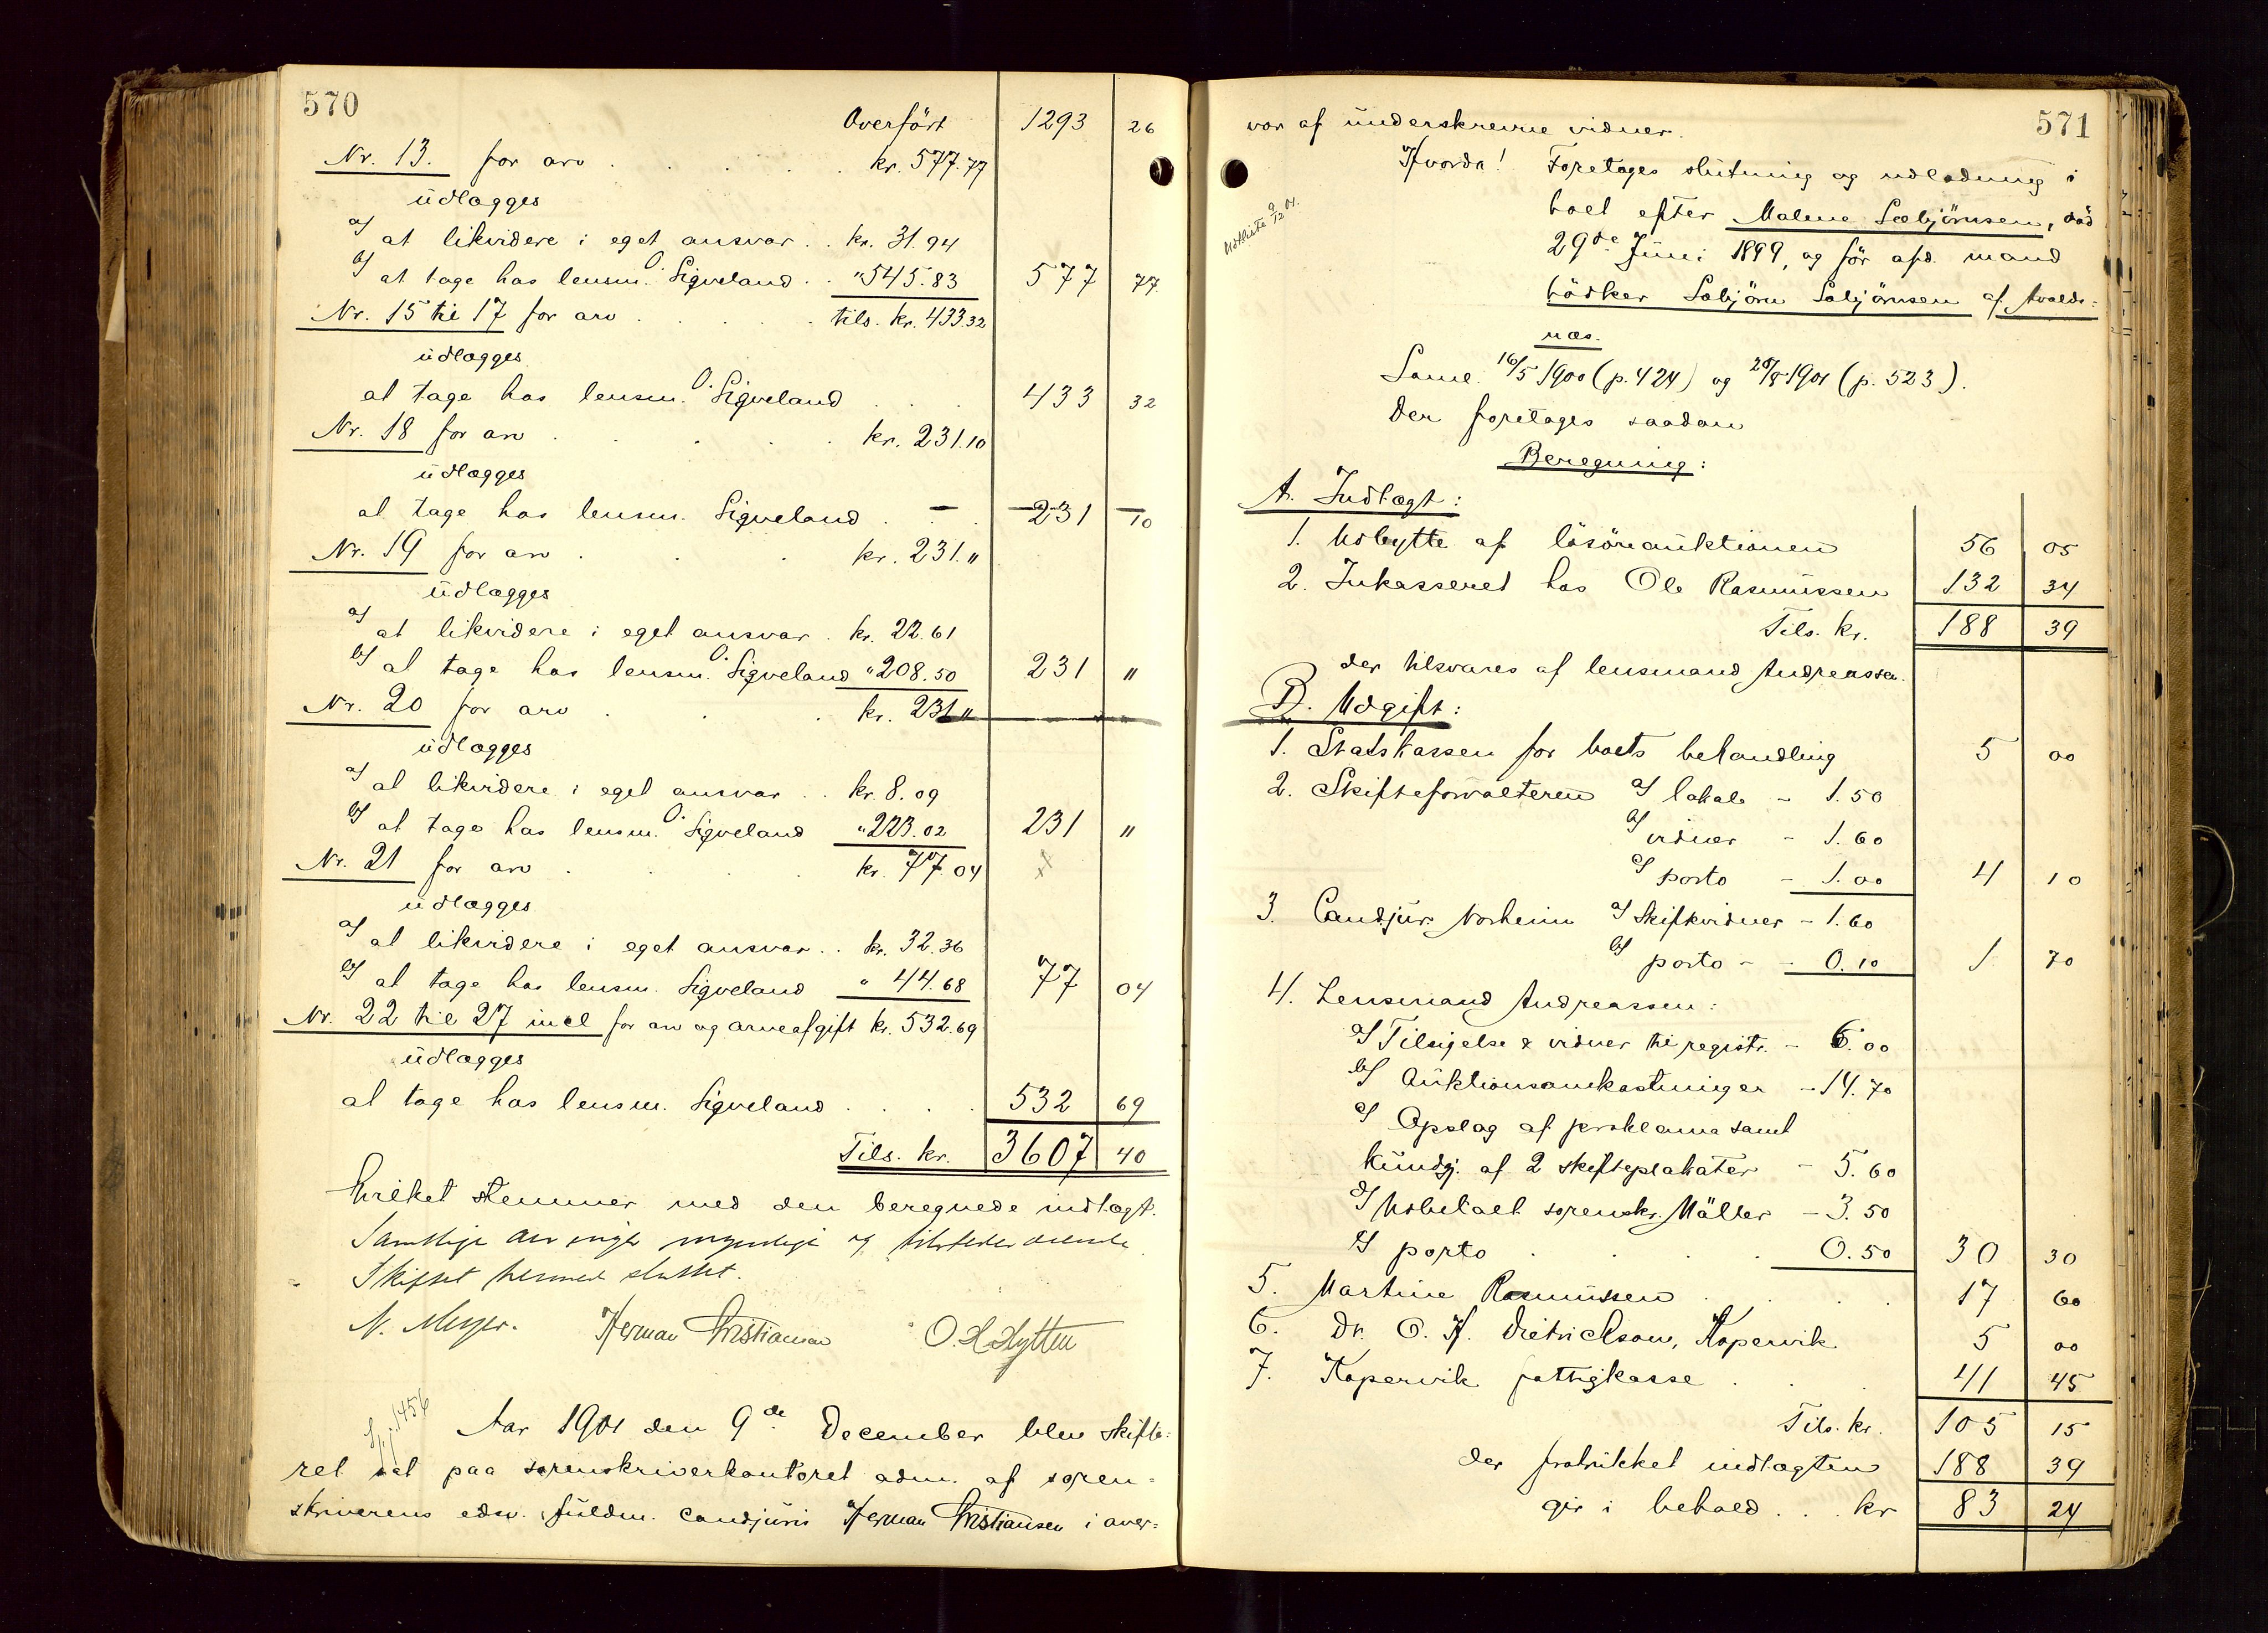 570
Overført 1293 26
Nr. 13. for arv . . . . kr. 577.77
üdlægges
a/ at likvidere i eget ansvar . . kr. 31.94
b/ at tage hos lensm. O. Sigveland . . " 545.83 577 77
Nr. 15 til 17 for arv . . . . tils. kr. 433.32
üdlægges
at tage hos lensm. O. Sigveland . . . 433 32
Nr. 18 for arv . . . . kr. 231.10
üdlægges
at tage hos lensm. Sigveland . . . 231 10
Nr. 19 for arv . . . kr. 231."
üdlægges
a/ at likvidere i eget ansvar . kr. 22.61
b/ at tage hos lensm. O. Sigveland " 208.50 231 "
Nr. 20 for arv . . . kr. 231 "
üdlægges
a/ at likvidere i eget ansvar . . kr. 8.09
b/ at tage hos lensm. O. Sigveland " 223.02 231 "
Nr. 21 for arv . . . . kr. 77.04
üdlægges
a/ at likvidere i eget ansvar . . kr. 32.36
b/ at tage hos lensm. Sigveland " 44.68 77 04
Nr. 22 til 27 incl for arv og arveafgift kr. 532.69
üdlægges
at tage hos lensm. Sigveland . . . . 532 69
Tils. kr. 3607 40
hvilket stemmer med den beregnede indtægt.
Samtlige arvinger myndige og tilstedeværende
Skiftet hermed sluttet.
N. Meyer. Herman Christiansen
Aar 1901 den 9de December blev skifte=
ret sat paa sorenskriverkontoret adm. af soren=
skriverens edsv. füldm. cand juris Herman Christiansen i over=
571
vær af ünderskrevne vidner.
Hvorda! Foretages slütning og udlodning i
boet efter Malene Sæbjörnsen, död
29de Jüni 1899, og för afd. mand
bödker Sæbjörn Sæbjörnsen af Avalds=
næs.
Saml. 16/5 1900 (p. 424) og 28/8 1901 (p. 523).
Der foretages saadan
Beregning:
A. Indtægt:
1. Udbytte af lösöreaüktionen 56 05
2. Inkasseret hos Ole Rasmüssen 132 34
Tils. kr. 188 39
der tilsvares af lensmand Andreassen.
B. Udgift:
1. Statskassen for boets behandling 5 00
2. Skifteforvalteren a/ lokale - 1.50
b/ vidner - 1.60
c/ porto - 1.00 4 10
3. Cand jur Norheim a/ Skiftevidner - 1.60
b/ porto - - 0.10 1 70
4. Lensmand Andreassen:
a/ Tilsigelse & vidner til registr. - 6.00
b/ Aüktionsomkostninger - 14.70
c/ Opslag af proklama samt
kündgj. af 2 skifteplakater - 5.60
d/ Udbetalt sorenskr. Mäller - 3.50
e/ porto . . . . 0.50 30 30
5. Martine Rasmüssen . . . 17 60
6. Dr. O. H. Dietrichson, Kopervik 5 00
7. Kopervik fattigkasse . . . 41 45
Tils. kr. 105 15
der fratrükket indtægten 188 39
gir i behold . . . kr 83 24